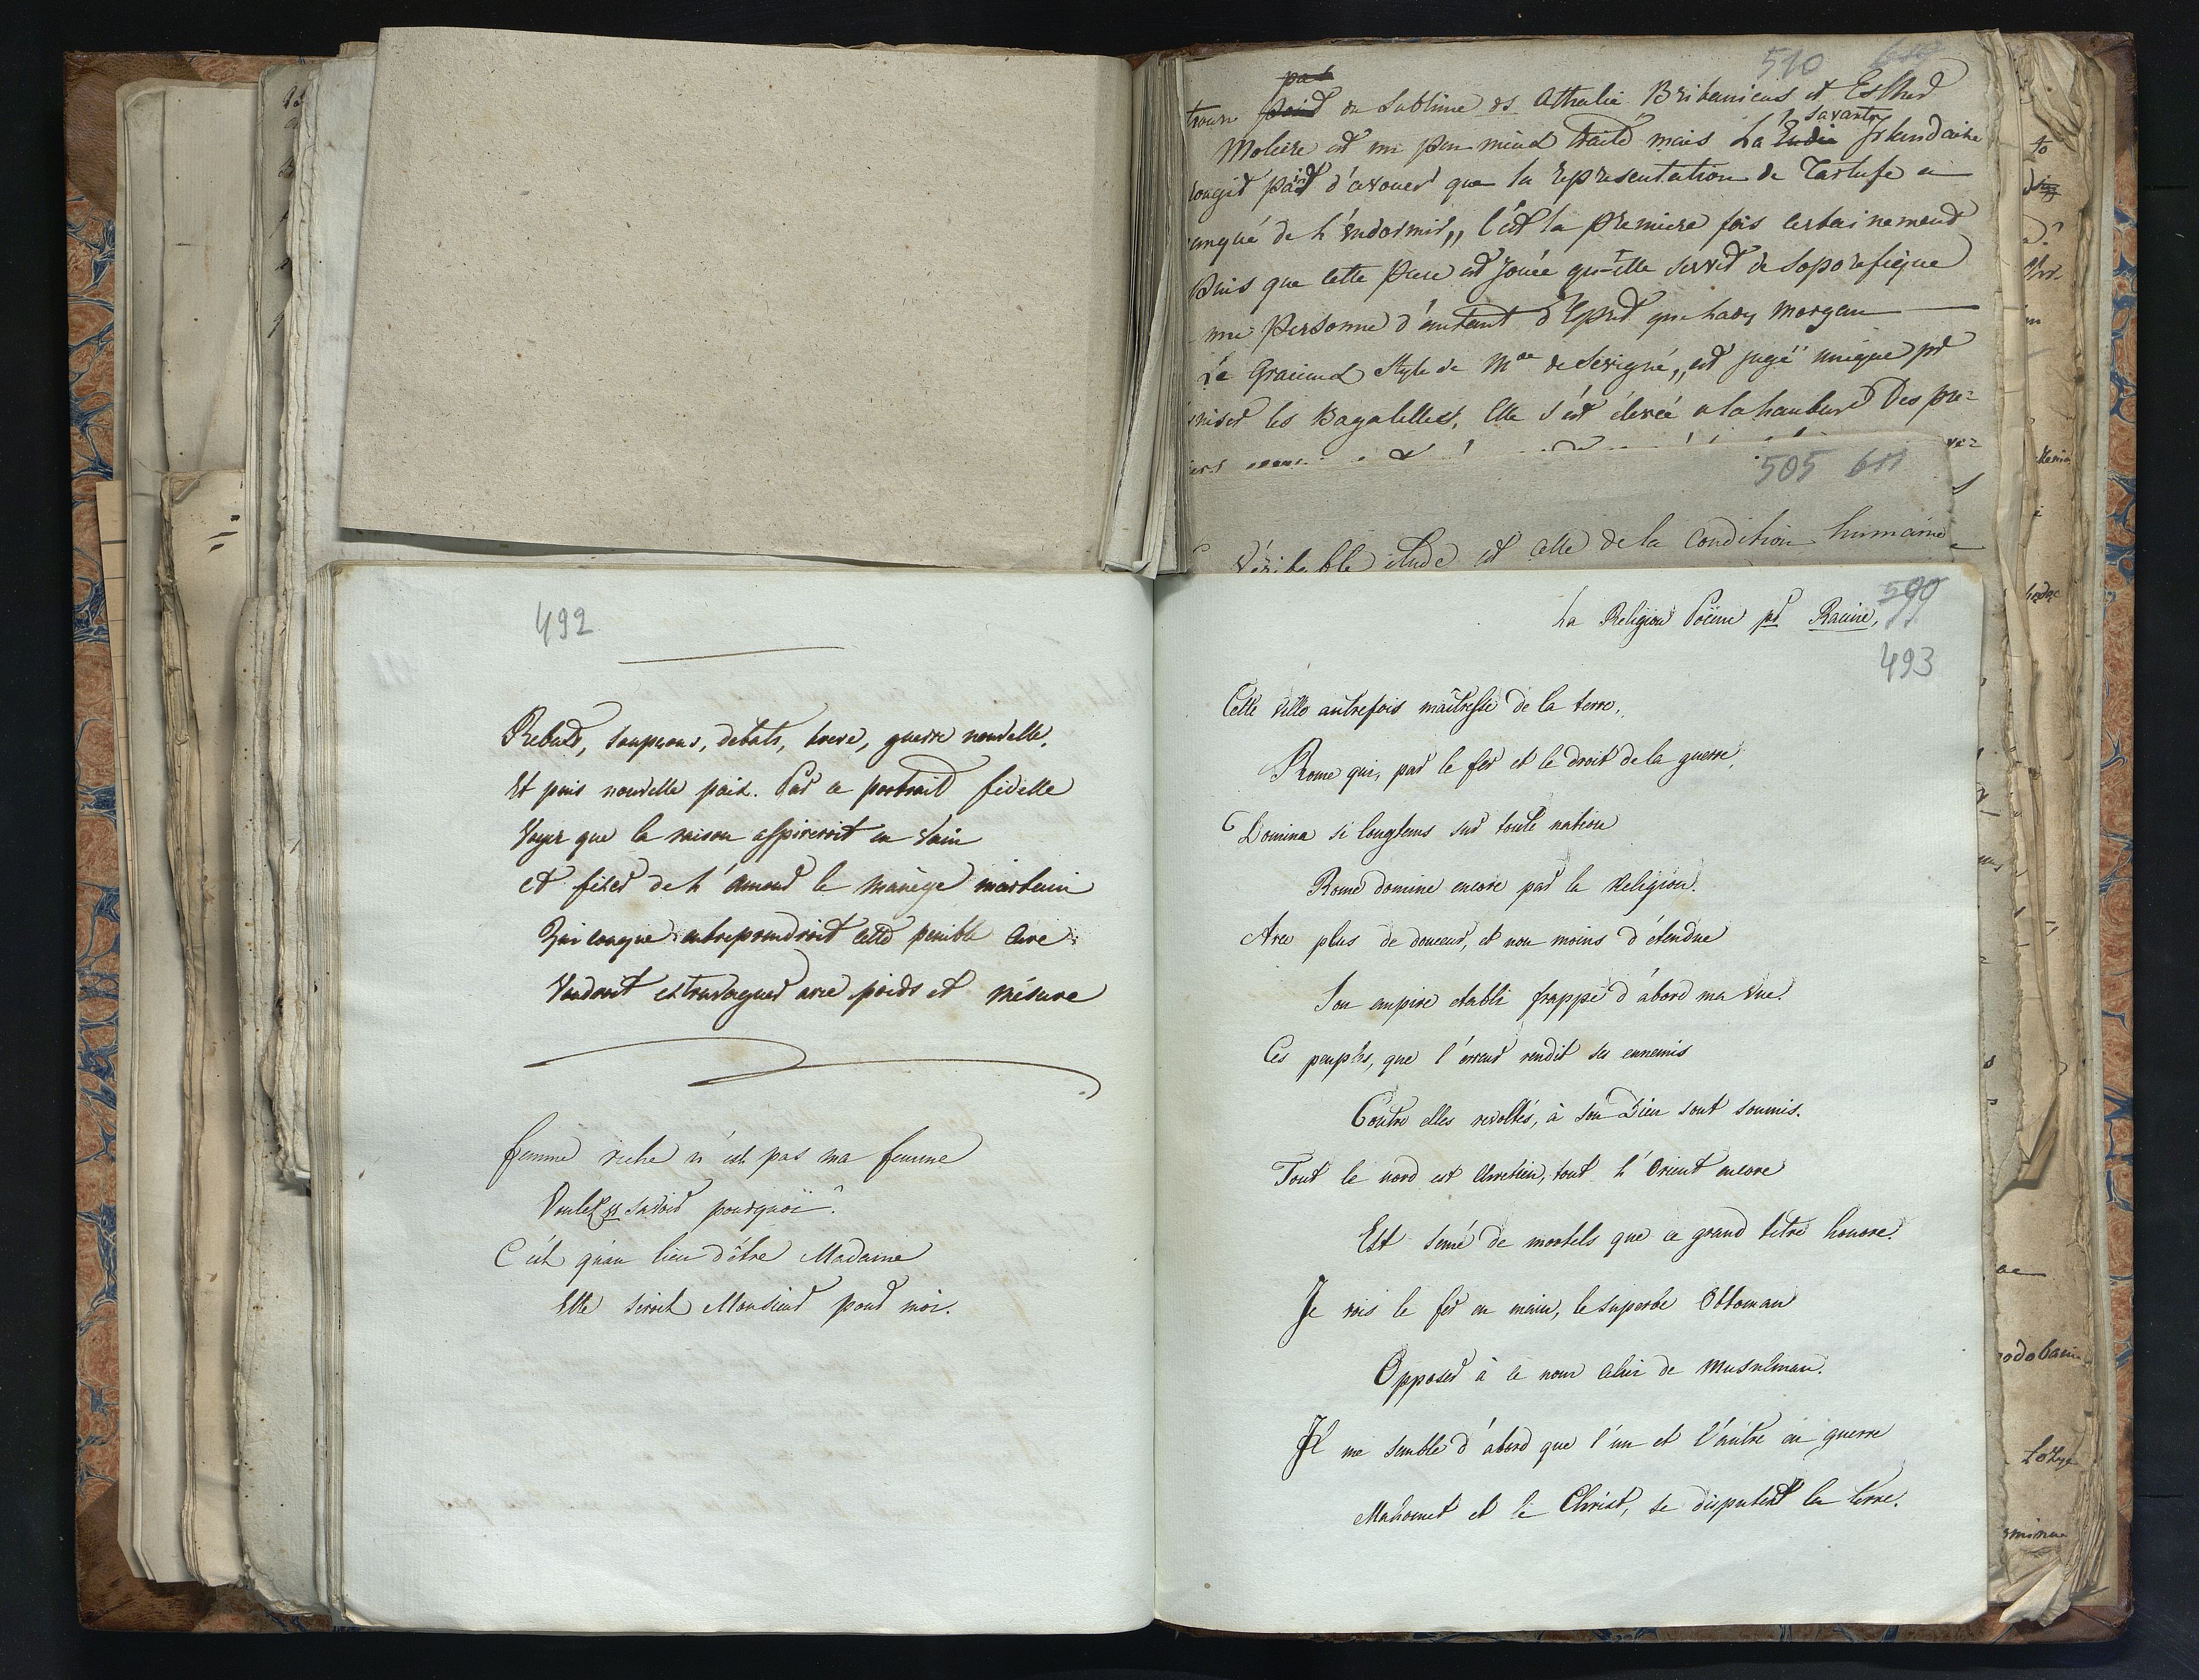 492
Rebuts, soupçons, debats, treve, guerre nouvelle,
Et puis nouvelle paix. Par ce portrait fidelle
Voyez que la raison aspireroit en vain
et fixer de l'amour le manège incertain
Quiconque entreprendroit cette penible cure
Voudroit extravaguer avec poids et mésure
femme riche n'est pas ma femme
Voulez vs savoir pourquoi ?
C'est qu'au lieu d'être Madame
Elle seroit Monsieur pour moi.
510
trouve du sublime ds Athalie Britanicus et Esther
Moliere est un peu mieux traité mais La savante Irlandaise
rougit pas d'avouer que la représentation de Tartufe a
manqué de l'endormir,, C'est la premiere fois certainement
puis que cette piece est jouée qu'elle servit de soporefique
une personne d'autant d'Esprit que Lady Morgan
Le Gracieux Style de Mde de Sévigné,, est jugé unique pr
les Bagatelles, Elle s'est élevée a la hauteur Des pre=
505 611
Véritable étude est celle de la condition humaine
La Religion Poëme pr Racine,
493
Cette ville autrefois maîtresse de la terre,
Rome qui, par le fer et le droit de la guerre,
Domina si longtems sur toute nation
Rome domine encore par la Religion.
Avec plus de douceur, et non moins d'étendue
Son empire etabli frappe d'abord ma vue.
Ces peuples, que l'erreur rendit ses ennemis
Contre elles revoltés, à son Dieu sont soumis.
Tout le nord est Chretien, tout l'Orient encore
Est semé de mortels que ce grand titre honore.
Je vois le fer en main, le superbe Ottoman
Opposer à ce nom celui de Musulman.
Il me semble d'abord que l'un et l'autre en guerre
Mahomet et le Christ, se disputent la terre.